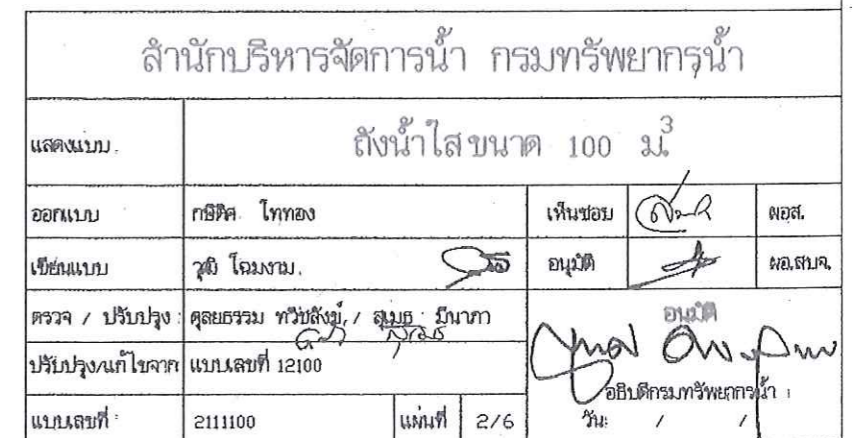 สำนักบริหารจัดการน้ำ กรมทรัพยากรน้ำ
แสดงแบบ ถังน้ำใส ขนาด 100 ม.3
ออกแบบ กษิติศ ไททอง เห็นชอบ ผอส.
เขียนแบบ วุฒิ โฉมงาม. อนุมัติ ผอ.สบจ.
ตรวจ / ปรับปรุง : ดุลยธรรม ทวิชสังข์ / สุเมธ มีนาภา อนุมัติ
ปรับปรุง/แก้ไขจาก แบบเลขที่ 12100 อธิบดีกรมทรัพยากรน้ำ
แบบเลขที่ 2111100 แผ่นที่ 2/6 วัน / /